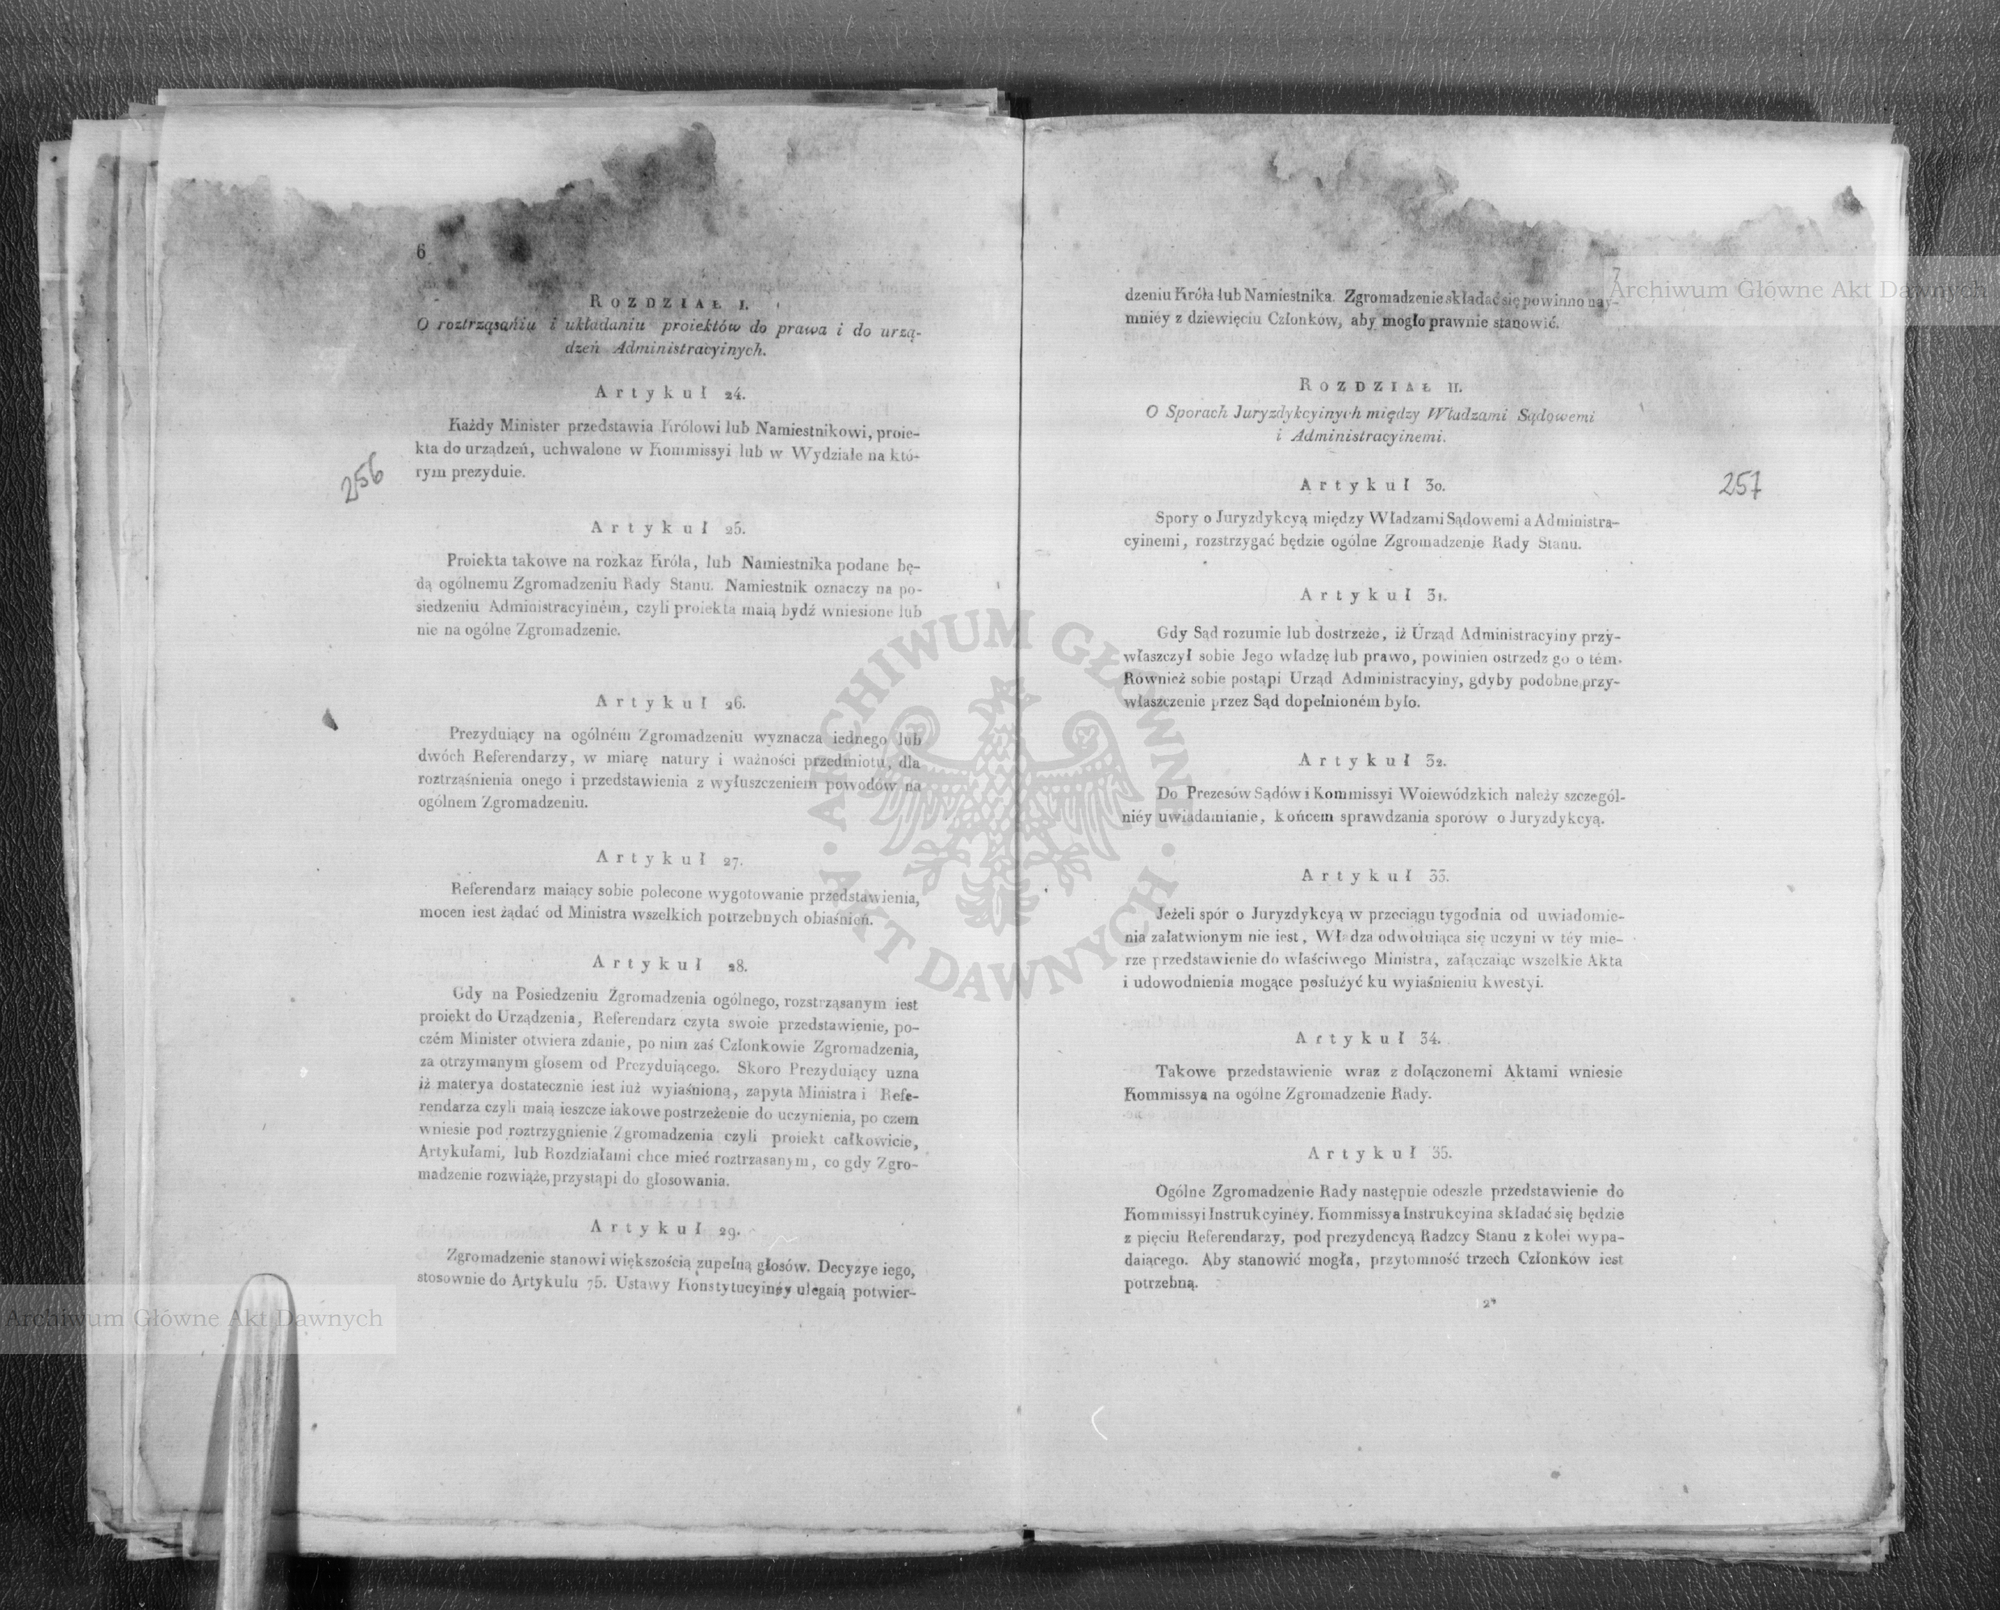 6
Rozdział I.
O roztrząsaniu i układaniu proiektów do prawa i do urzą-
dzeń Administracyinych.
Artykuł 24.
Każdy Minister przedstawia Królowi lub Namiestnikowi, proie-
kta do urządzeń, uchwalone w Kommissyi lub w Wydziale na któ-
rym prezyduie.
256
Artykuł 25.
Proiekta takowe na rozkaz Króla, lub Namiestnika podane bę-
dą ogólnemu Zgromadzeniu Rady Stanu. Namiestnik oznaczy na po-
siedzeniu Administracyiném, czyli proiekta maią bydź wniesione lub
nie na ogólne Zgromadzenie.
Artykuł 26.
Prezyduiący na ogólném Zgromadzeniu wyznacza iednego lub
dwóch Referendarzy, w miarę natury i ważności przedmiotu, dla
roztrząśnienia onego i przedstawienia z wyłuszczeniem powodów na
ogólnem Zgromadzeniu.
Artykuł 27.
Referendarz maiący sobie polecone wygotowanie przedstawienia,
mocen iest żądać od Ministra wszelkich potrzebnych obiaśnień.
Artykuł 28.
Gdy na Posiedzeniu Zgromadzenia ogólnego, rozstrząsanym iest
proiekt do Urządzenia, Referendarz czyta swoie przedstawienie, po-
czém Minister otwiera zdanie, po nim zaś Członkowie Zgromadzenia,
za otrzymanym głosem od Prezyduiącego. Skoro Prezyduiący uzna
iż materya dostatecznie iest iuż wyiaśnioną, zapyta Ministra i Refe-
rendarza czyli maią ieszcze iakowe postrzeżenie do uczynienia, po czem
wniesie pod roztrzygnienie Zgromadzenia czyli proiekt całkowicie,
Artykułami, lub Rozdziałami chce mieć roztrzasanym, co gdy Zgro-
madzenie rozwiąże, przystąpi do głosowania.
Artykuł 29.
Zgromadzenie stanowi większością zupełną głosów. Decyzye iego,
stosownie do Artykułu 75. Ustawy Konstytucyinéy ulegaią potwier-
7
dzeniu Króla lub Namiestnika. Zgromadzenie składać się powinno nay-
mniéy z dziewięciu Członków, aby mogło prawnie stanowić.
Rozdział II.
O Sporach Juryzdykcyinych między Władzami Sądowemi
i Administracyinemi.
Artykuł 30.
257
Spory o Juryzdykcyą między Władzami Sądowemi a Administra-
cyinemi, rozstrzygać będzie ogólne Zgromadzenie Rady Stanu.
Artykuł 31.
Gdy Sąd rozumie lub dostrzeże, iż Urząd Administracyiny przy-
właszczył sobie Jego władzę lub prawo, powinien ostrzedz go o tém.
Również sobie postąpi Urząd Administracyiny, gdyby podobne przy-
właszczenie przez Sąd dopełnioném było.
Artykuł 32.
Do Prezesów Sądów i Kommissyi Woiewódzkich należy szczegól-
niéy uwiadamianie, końcem sprawdzania sporów o Juryzdykcyą.
Artykuł 33.
Jeżeli spór o Juryzdykcyą w przeciągu tygodnia od uwiadomie-
nia załatwionym nie iest, Władza odwołuiąca się uczyni w téy mie-
rze przedstawienie do właściwego Ministra, załączaiąc wszelkie Akta
i udowodnienia mogące posłużyć ku wyiaśnieniu kwestyi.
Artykuł 34.
Takowe przedstawienie wraz z dołączonemi Aktami wniesie
Kommissya na ogólne Zgromadzenie Rady.
Artykuł 35.
Ogólne Zgromadzenie Rady następnie odeszle przedstawienie do
Kommissyi Instrukcyiney. Kommissya Instrukcyina składać się będzie
z pięciu Referendarzy, pod prezydencyą Radzcy Stanu z kolei wypa-
daiącego. Aby stanowić mogła, przytomność trzech Członków iest
potrzebną.
2*
Archiwum Główne Akt Dawnych
Archiwum Główne Akt Dawnych
ARCHIWUM GŁÓWNE · AKT DAWNYCH ·